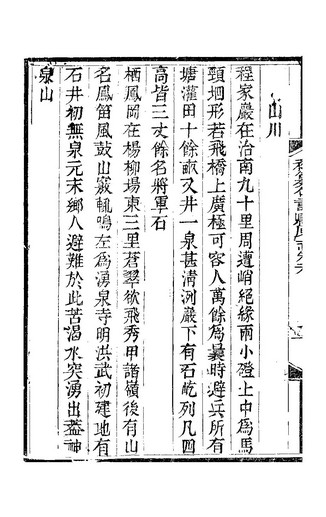 山川
程家巖在治南九十里周遭峭絕緣兩小磴上中爲馬
頸坳形若飛橋上廣極可容人萬餘爲曩時避兵所有
塘灌田十餘畝又井一泉甚清洌巖下有石屹列凡四
高皆三丈餘名將軍石
栖鳳岡在楊柳場東三里蒼翠欲飛秀甲諸嶺後有山
名鳳笛風鼓山竅輒鳴左爲湧泉寺明洪武初建地有
石井初無泉元末鄉人避難於此苦渴水突湧出葢神
泉山